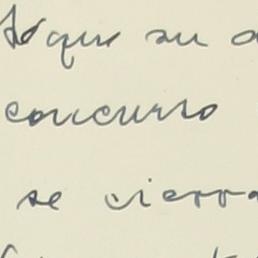 que su
concurso
se cierra